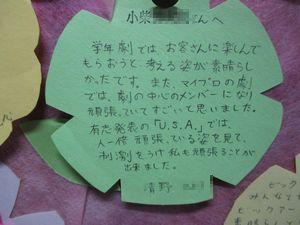 小柴 さんへ
学年劇では、お客さんに楽しんで
もらおうと、考える姿が素晴らし
かったです。また、マイプロの劇
では、劇の中心のメンバーになり
頑張っていてすごいと思いました。
有志発表の「U.S.A.」では、
人一倍頑張っている姿を見て、
刺激をうけ私も頑張ることが
出来ました。
清野
ビック
みんなで
ビックアー